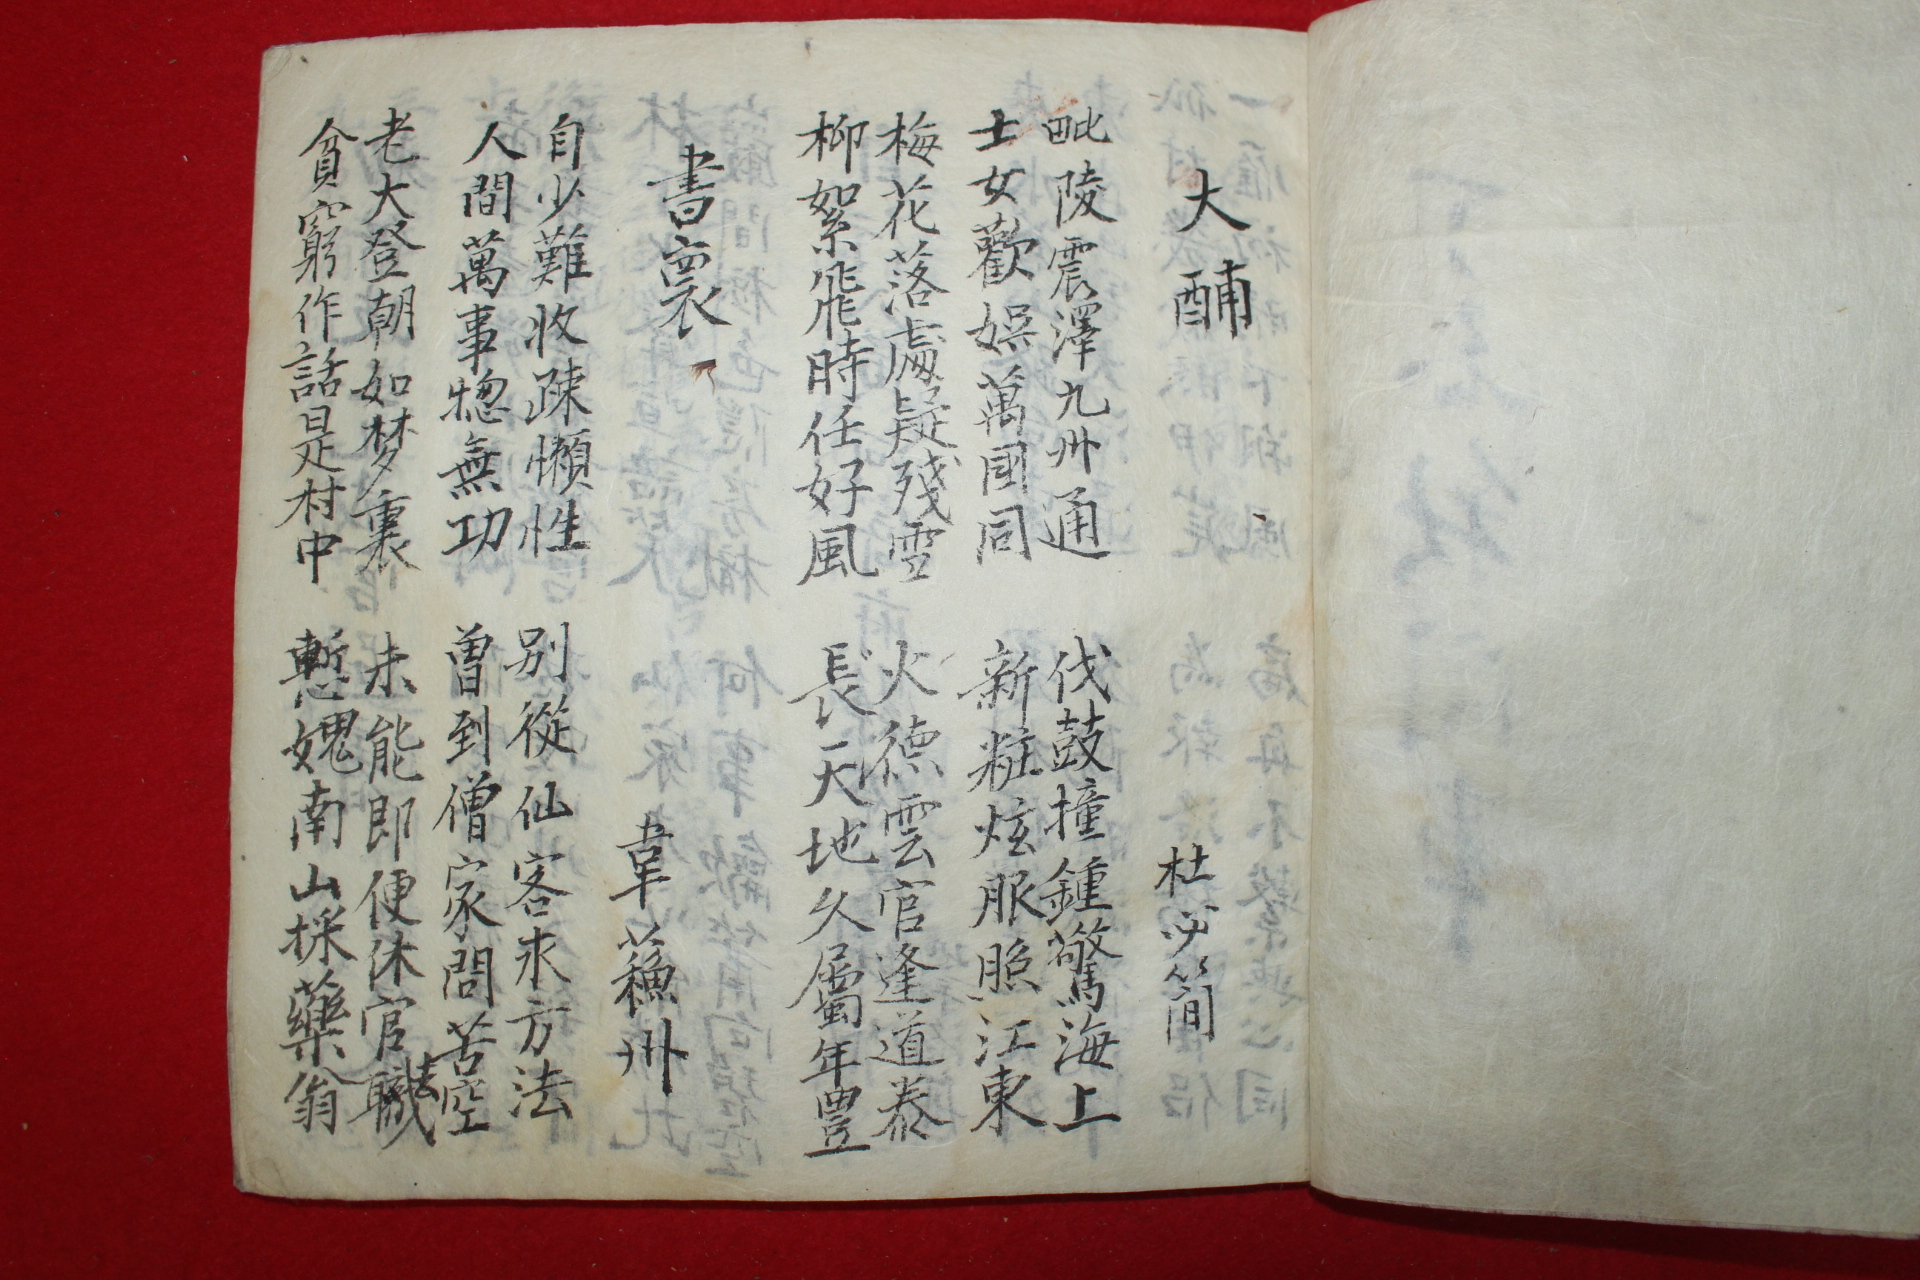 大酺 杜必簡
毗陵震澤九州通 伐鼓撞鍾驚海上
士女歡娯萬囯同 新粧炫服照江東
梅花落處疑殘雪 火德雲官逢道泰
柳絮飛時任好風 長天地久屬年豊
書褱 韋蘓州
自少難收疎懶性 別從仙客求方法
人間萬事惣無功 曽到僧家問苦空
老大登朝如梦裏 未能即便休官職去
貪窮作話是村中 慙媿南山採藥翁